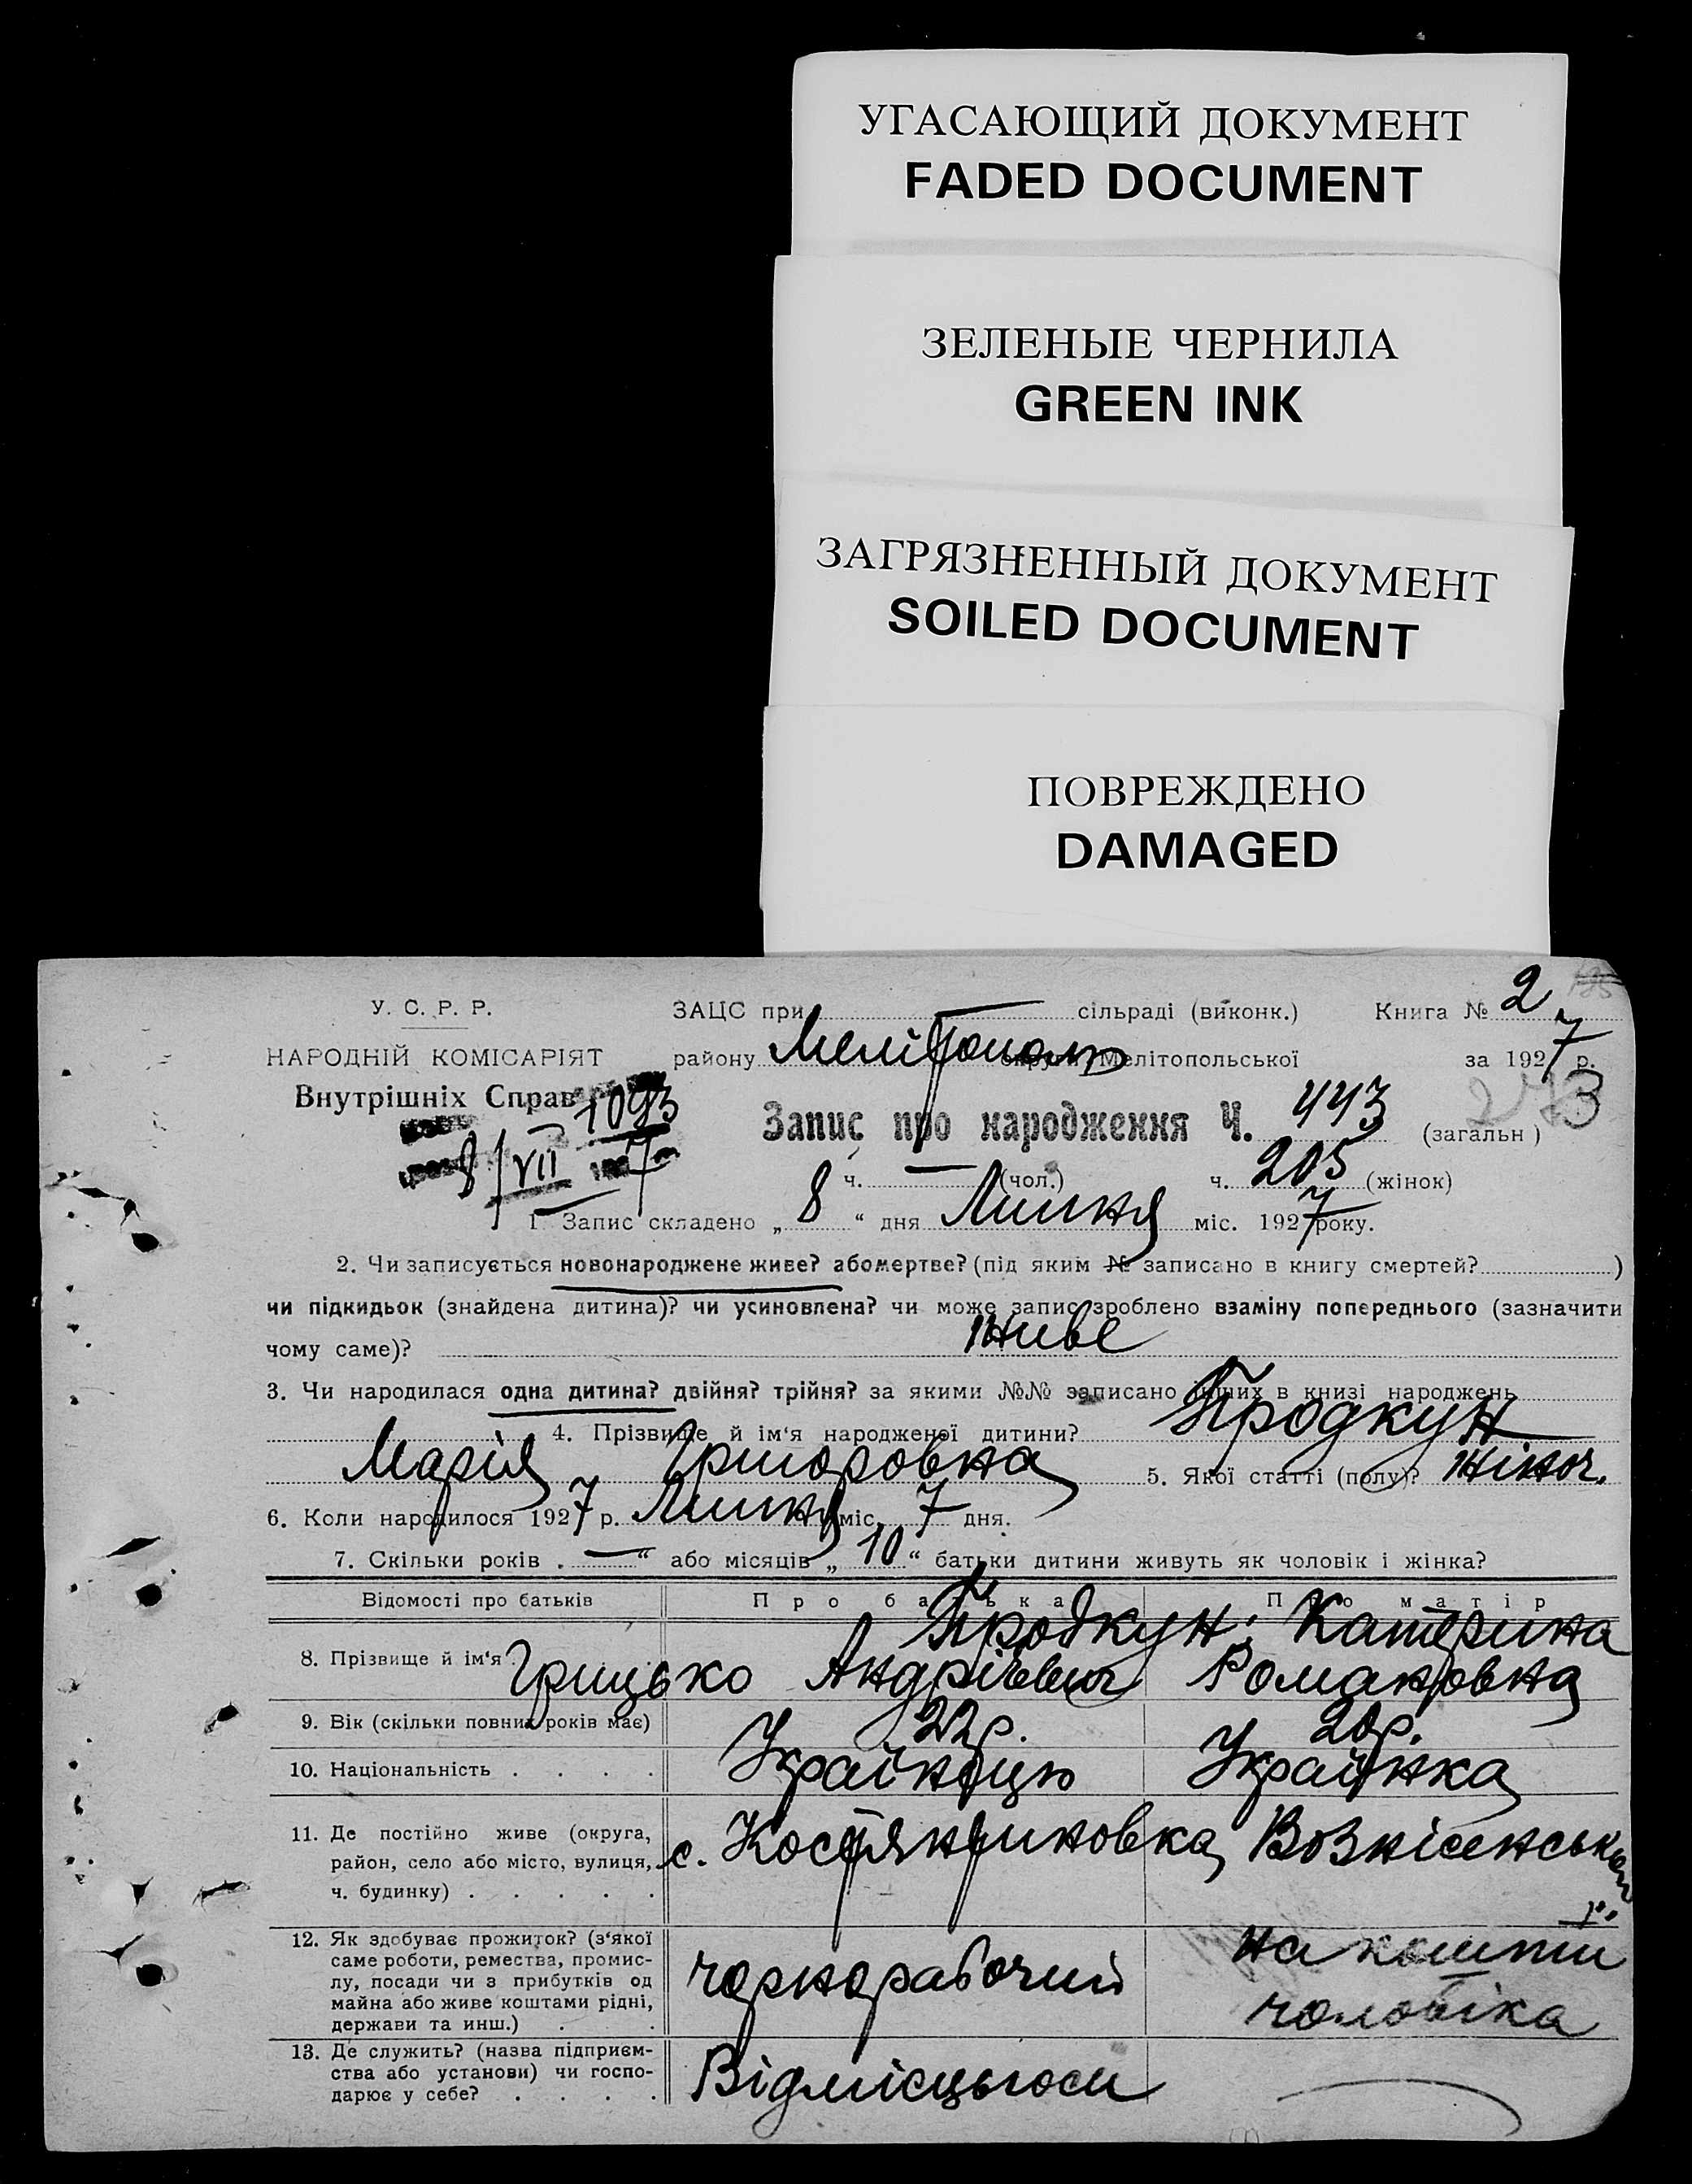 УГАСАЮЩИЙ ДОКУМЕНТ
FADED DOCUMENT
ЗЕЛЕНЫЕ ЧЕРНИЛА
GREEN INK
ЗАГРЯЗНЕННЫЙ ДОКУМЕНТ
SOILED DOCUMENT
ПОВРЕЖДЕНО
DAMAGED
У. С. Р. Р.
НАРОДНІЙ КОМІСАРІЯТ
Внутрішніх Справ
1093
8/VII 7
ЗАЦС при — сільраді (виконк.) Книга № 2
району Мелітополь округи Мелітопольської за 1927 р.
Запис про народження Ч. 443 (загальн)
ч. — (чол.) ч. 205 (жінок)
1. Запис складено „ 8 “ дня Липня міс. 1927 року.
2. Чи записується новонароджене живе? або мертве? (під яким № записано в книгу смертей? )
чи підкидьок (знайдена дитина)? чи усиновлена? чи може запис зроблено взаміну попереднього (зазначити
чому саме)? живе
3. Чи народилася одна дитина? двійня? трійня? за якими №№ записано інших в книзі народжень
4. Прізвище й ім‘я народженої дитини? Продкун
Марія Григоровна 5. Якої статті (полу)? жіноч.
6. Коли народилося 1927 р. Липня міс. 7 дня.
7. Скільки років „ — “ або місяців „ 10 “ батьки дитини живуть як чоловік і жінка?
Відомості про батьків Про батька Про матір
8. Прізвище й ім‘я . Продкун Грицько Андрієвич Катерина Романовна
9. Вік (скільки повних років має) 22 р. 20 р.
10. Національність . . . . Українець Українка
11. Де постійно живе (округа,
район, село або місто, вулиця,
ч. будинку) . . . . .
с. Костянтиновка,
12. Як здобуває прожиток? (з‘якої
саме роботи, ремества, промис-
лу, посади чи з прибутків од
майна або живе коштами рідні,
держави та инш.) . .
чорнорабочий на кошти чоловіка
13. Де служить? (назва підприєм-
ства або установи) чи госпо-
дарює у себе? . . . .